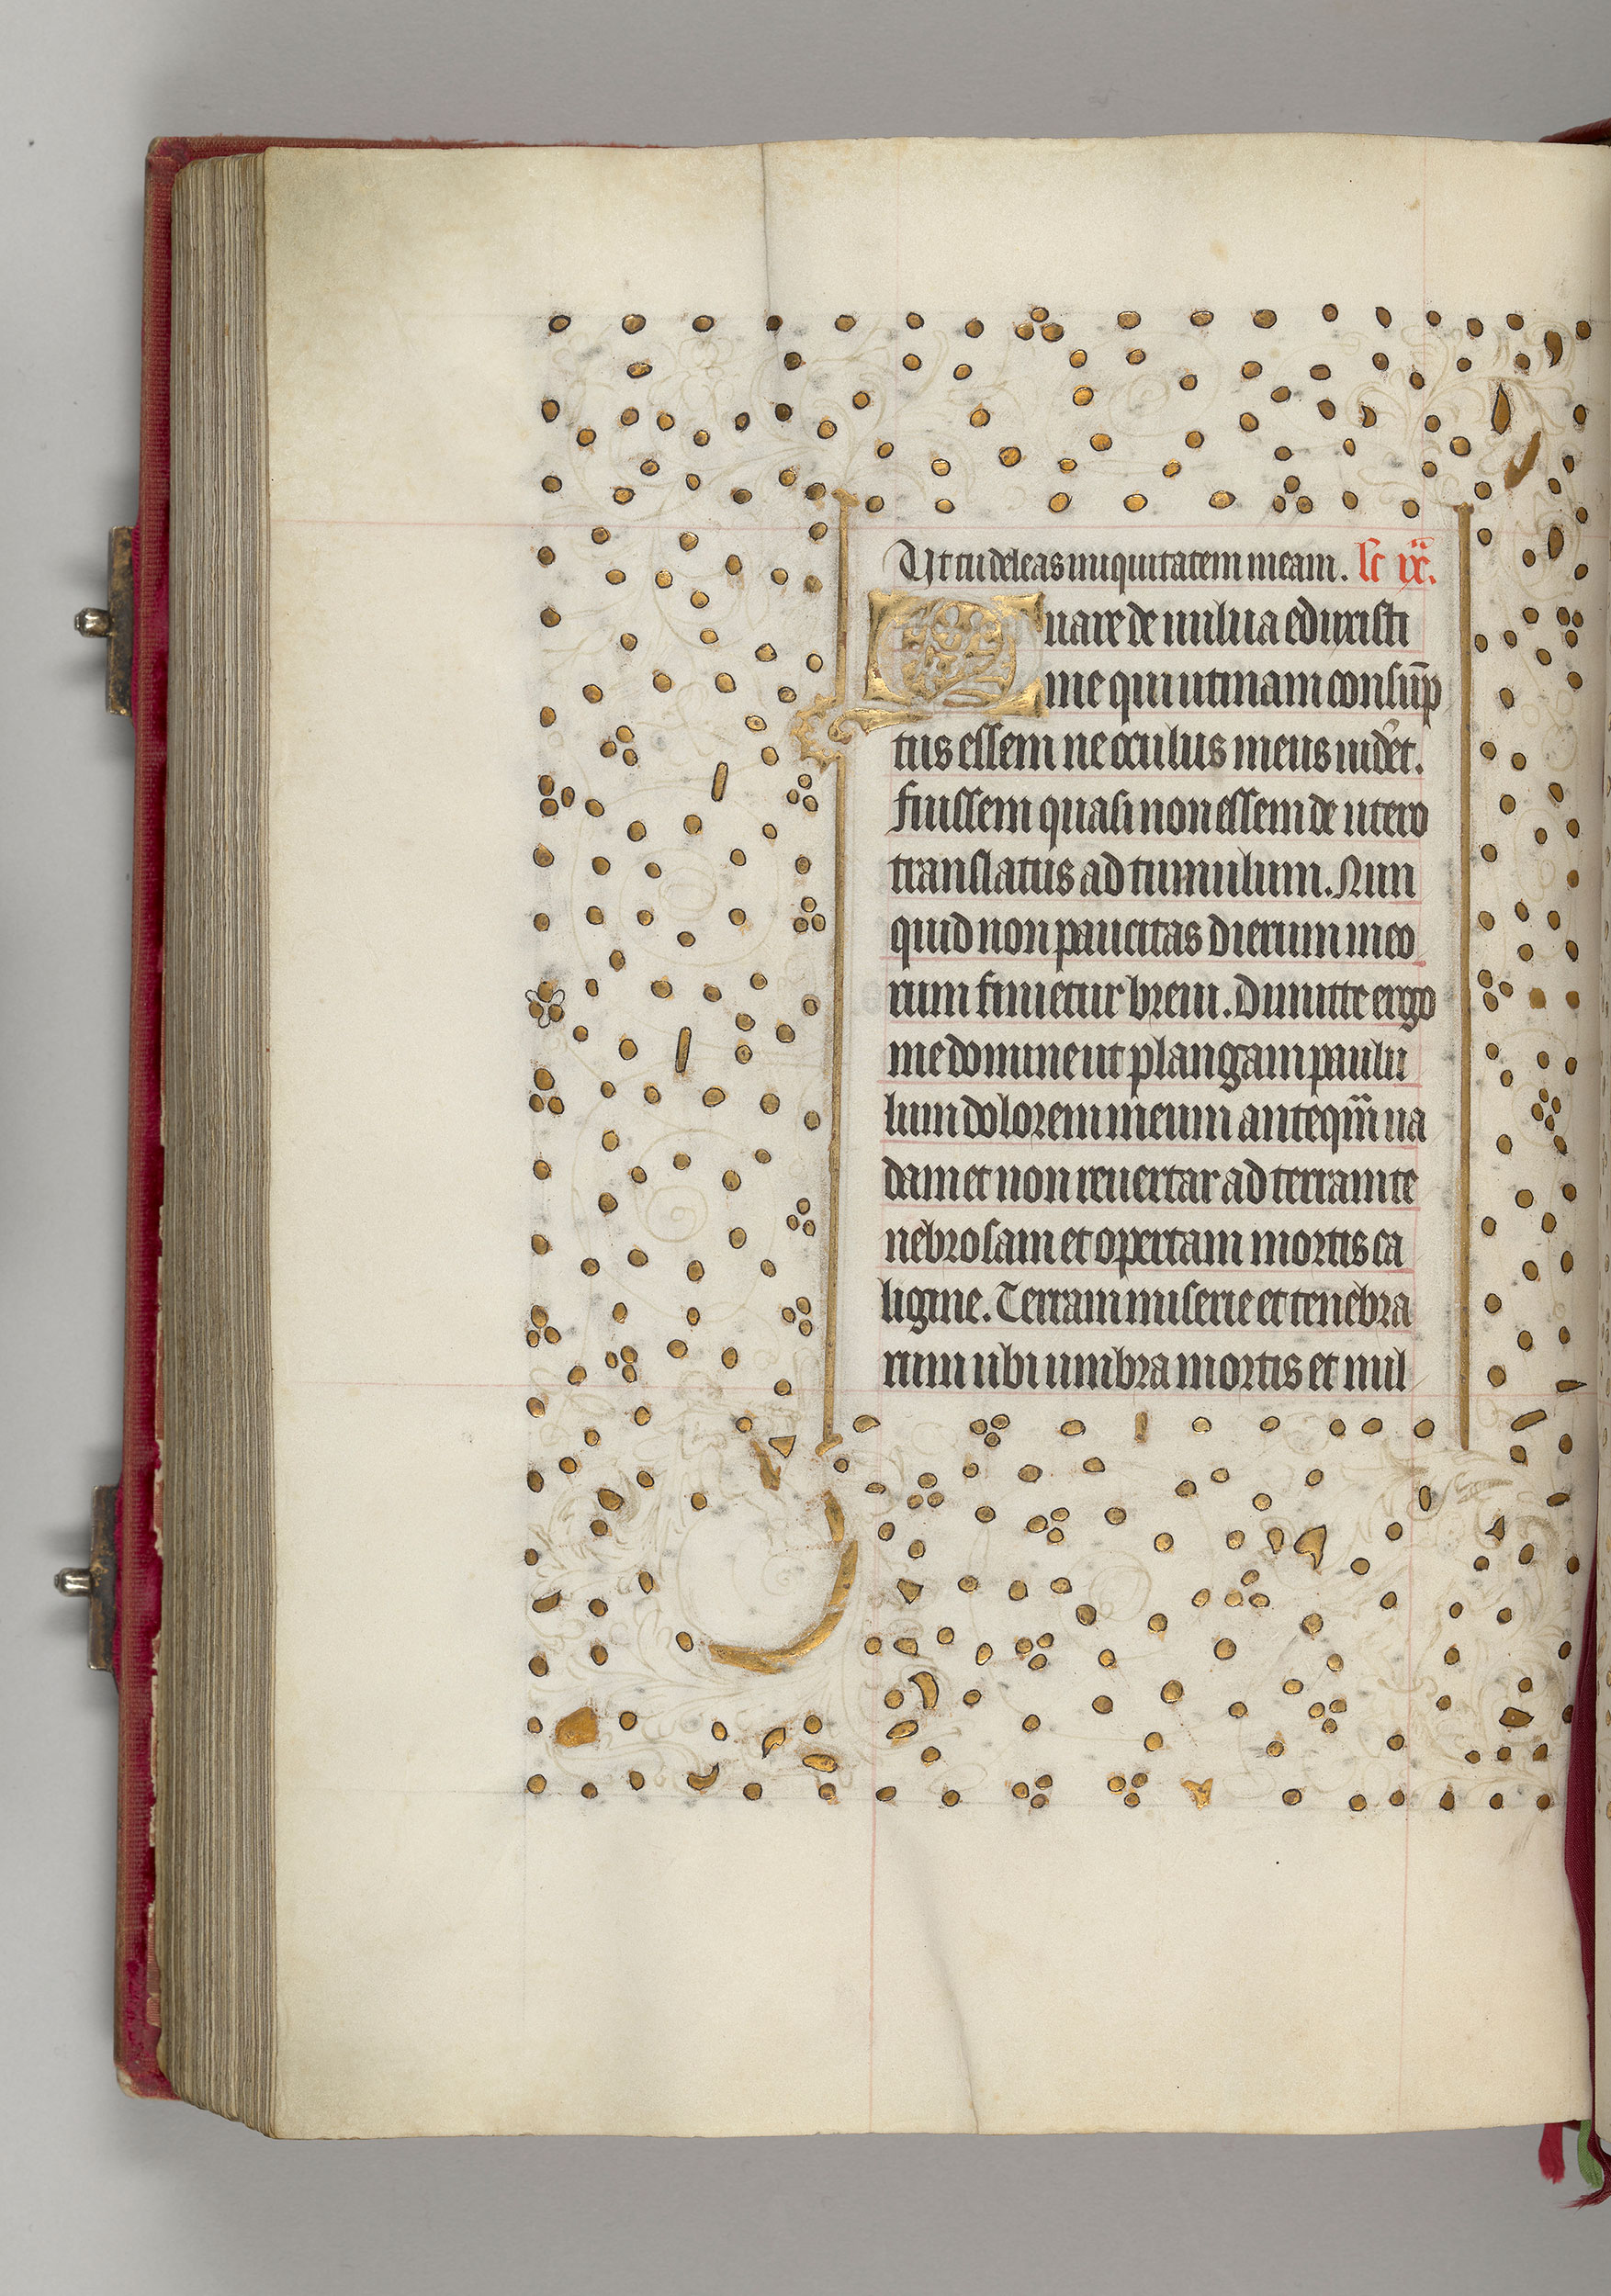 Ut tu deleas iniquitatem meam. lc ix.
Quare de uulua eduxisti
me qui utinam consūp
tus essem ne oculus meus uid'et.
fuissem quasi non essem de utero
translatus ad tumulum. Nun
quid non paucitas dierum meo
rum finietur breui. Dimitte ergo
me domine ut plangam paulu
lum dolorem meum anteqm̄ ua
dam et non reuertar ad terram te
nebrosam et opertam mortis ca
ligine. Terram miserie et tenebra
rum ubi umbra mortis et nul